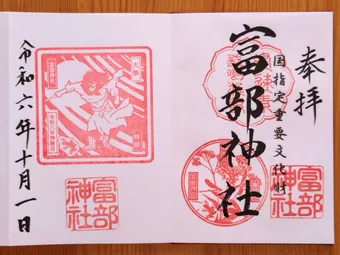 奉拝
国指定重要文化財
富部神社
富部神社
令和六年十月一日
富部神社